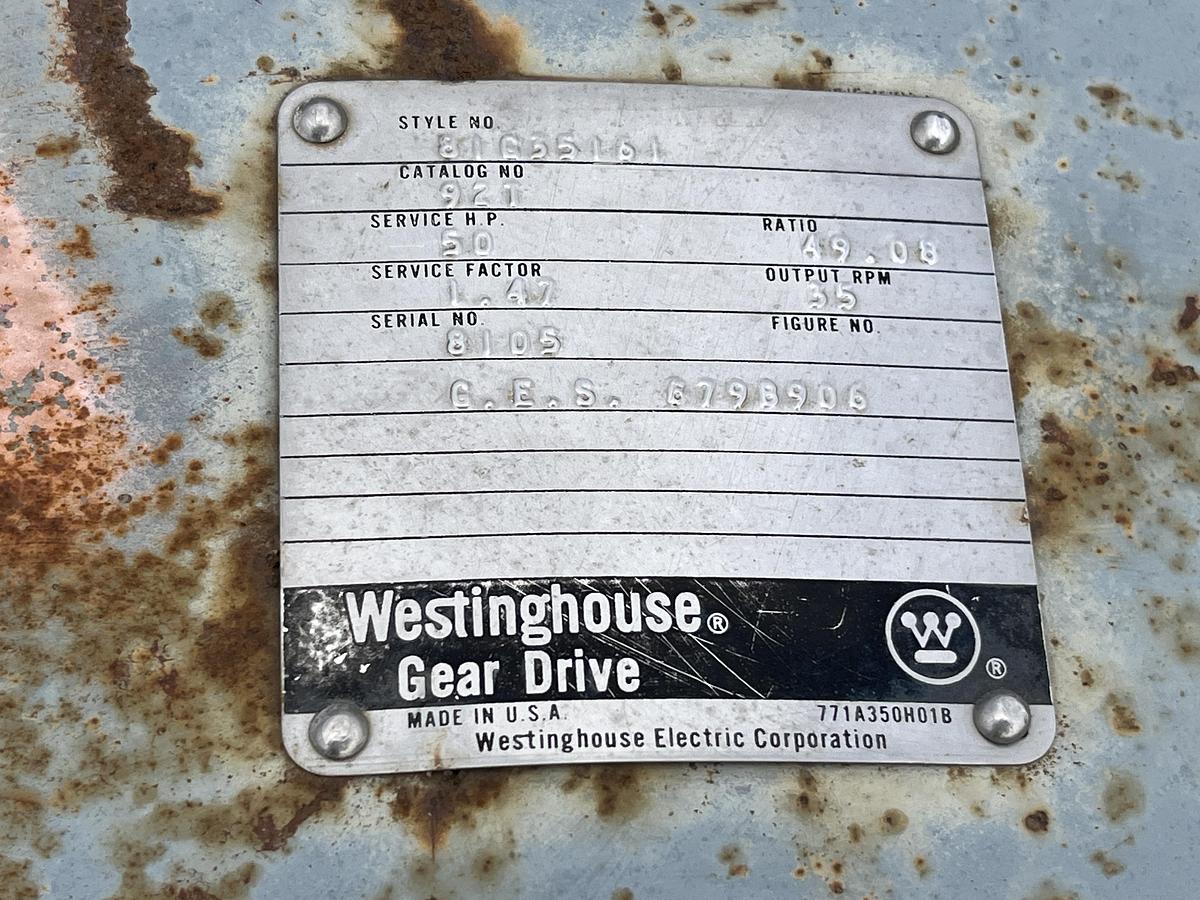 STYLE NO.
81G55161
CATALOG NO
92T
SERVICE H.P. RATIO
50 49.08
SERVICE FACTOR OUTPUT RPM
1.47 35
SERIAL NO. FIGURE NO.
8105
G.E.S. 679B906
Westinghouse®
Gear Drive
W ®
MADE IN U.S.A. 771A350H01B
Westinghouse Electric Corporation